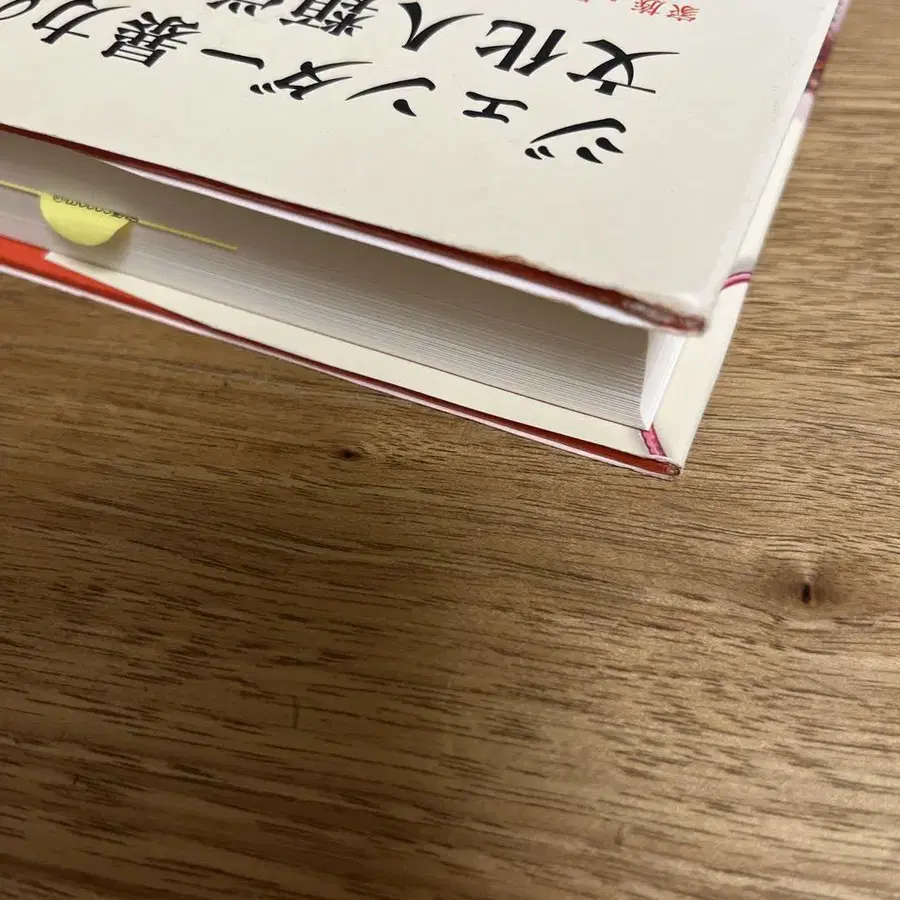 ジェンダー暴力の
文化人類学
家族